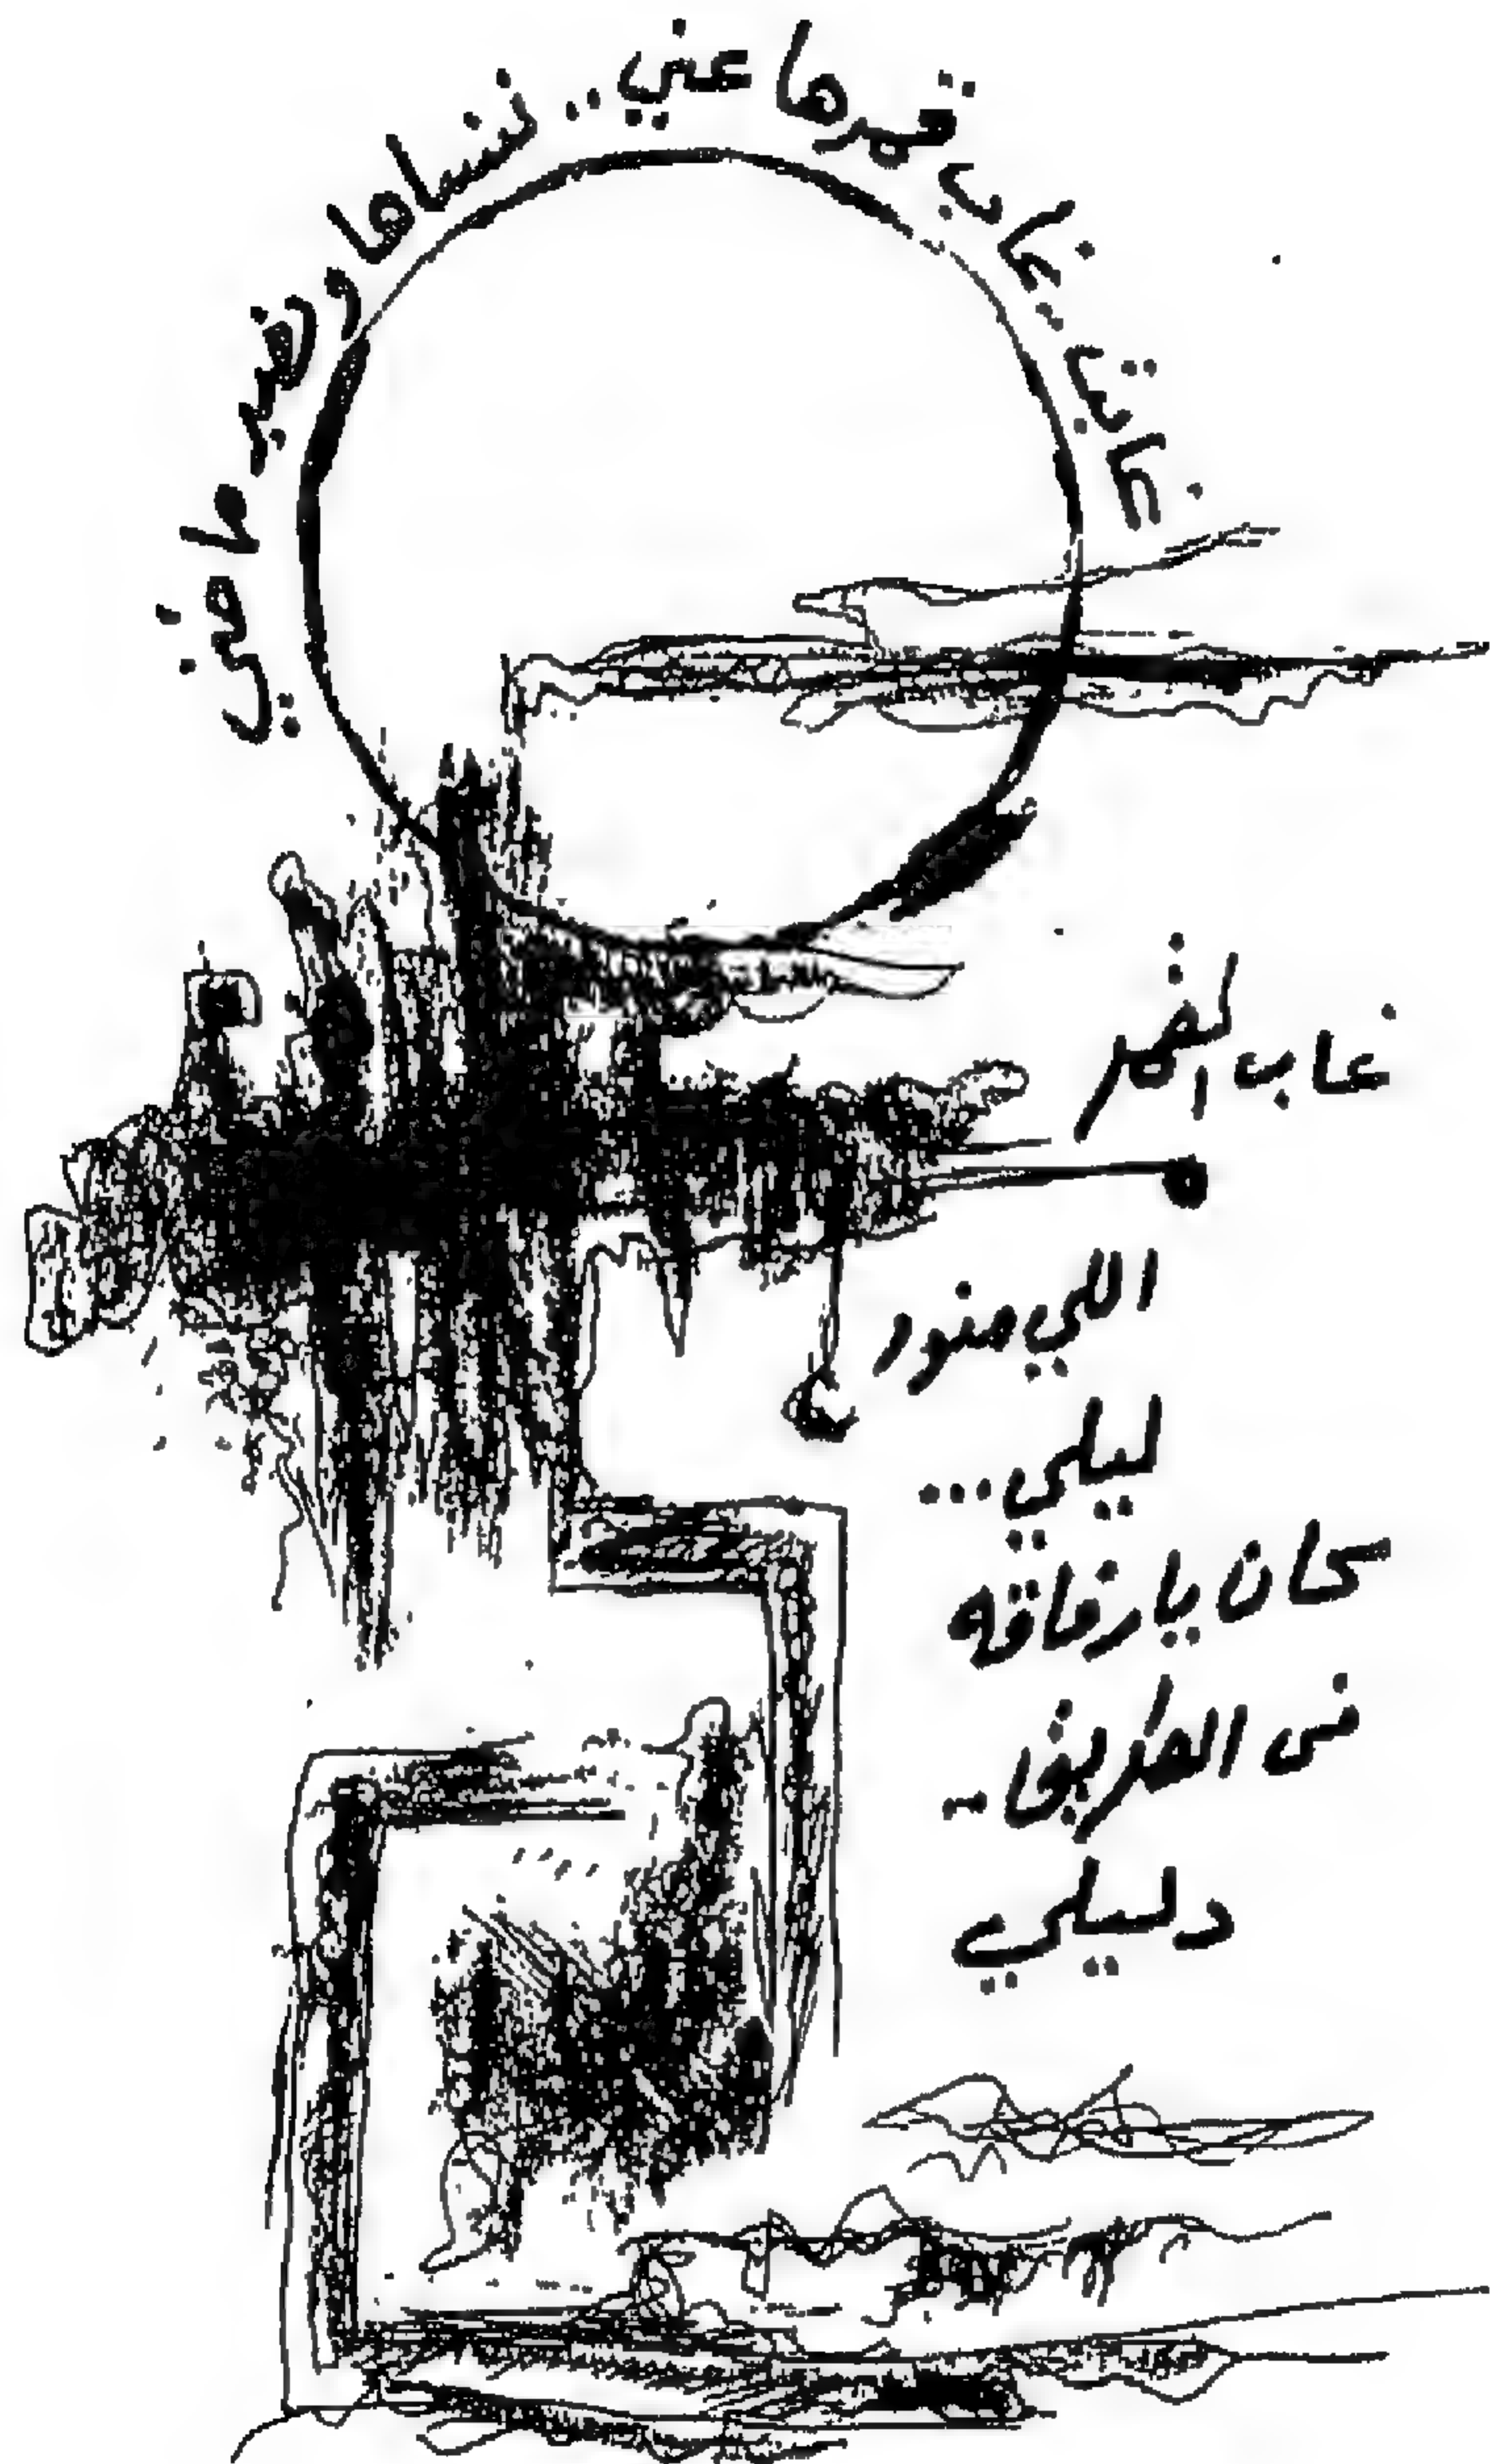 غابت يغاب قمرها عني.. ننساها ونصبر ماضي
غاب القمر
اللي منور
ليلي...
كان يا رفاقه
في الطريق..
دليلي